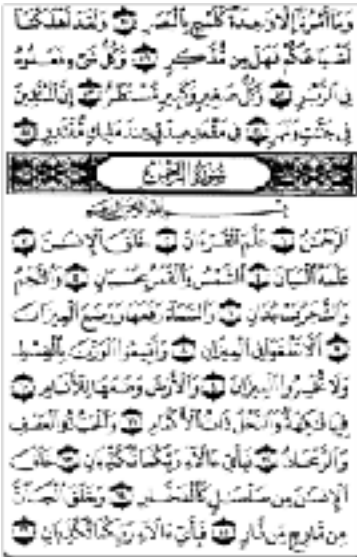 وَمَا أَمْرُنَا إِلَّا وَاحِدَةٌ كَلَمْحٍ بِالْبَصَرِ ۝ وَلَقَدْ أَهْلَكْنَا
أَشْيَاعَكُمْ فَهَلْ مِن مُّدَّكِرٍ ۝ وَكُلُّ شَيْءٍ فَعَلُوهُ
فِي الزُّبُرِ ۝ وَكُلُّ صَغِيرٍ وَكَبِيرٍ مُّسْتَطَرٌ ۝ إِنَّ الْمُتَّقِينَ
فِي جَنَّاتٍ وَنَهَرٍ ۝ فِي مَقْعَدِ صِدْقٍ عِندَ مَلِيكٍ مُّقْتَدِرٍ ۝
سُورَةُ الرَّحْمَٰن
بِسْمِ اللَّهِ الرَّحْمَٰنِ الرَّحِيمِ
الرَّحْمَٰنُ ۝ عَلَّمَ الْقُرْآنَ ۝ خَلَقَ الْإِنسَانَ ۝
عَلَّمَهُ الْبَيَانَ ۝ الشَّمْسُ وَالْقَمَرُ بِحُسْبَانٍ ۝ وَالنَّجْمُ
وَالشَّجَرُ يَسْجُدَانِ ۝ وَالسَّمَاءَ رَفَعَهَا وَوَضَعَ الْمِيزَانَ
۝ أَلَّا تَطْغَوْا فِي الْمِيزَانِ ۝ وَأَقِيمُوا الْوَزْنَ بِالْقِسْطِ
وَلَا تُخْسِرُوا الْمِيزَانَ ۝ وَالْأَرْضَ وَضَعَهَا لِلْأَنَامِ ۝
فِيهَا فَاكِهَةٌ وَالنَّخْلُ ذَاتُ الْأَكْمَامِ ۝ وَالْحَبُّ ذُو الْعَصْفِ
وَالرَّيْحَانُ ۝ فَبِأَيِّ آلَاءِ رَبِّكُمَا تُكَذِّبَانِ ۝ خَلَقَ
الْإِنسَانَ مِن صَلْصَالٍ كَالْفَخَّارِ ۝ وَخَلَقَ الْجَانَّ
مِن مَّارِجٍ مِّن نَّارٍ ۝ فَبِأَيِّ آلَاءِ رَبِّكُمَا تُكَذِّبَانِ ۝